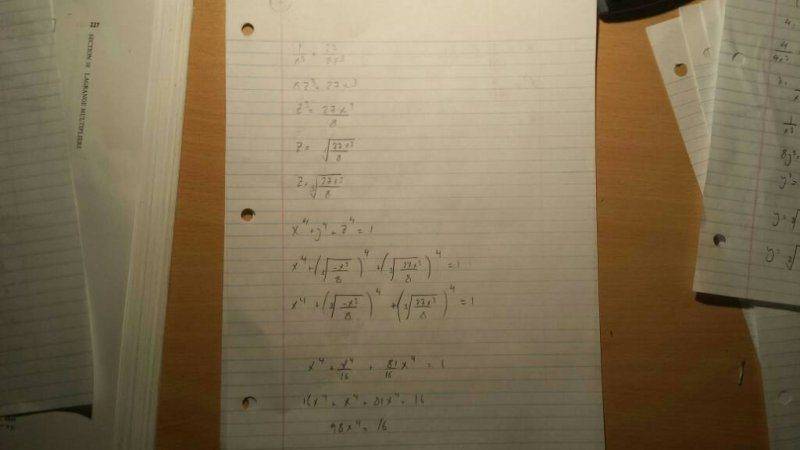 227
SECTION 14 LAGRANGE MULTIPLIERS
8z³ = 27x³
z³ = 27x³/8
z = √(27x³/8)
z = ³√(27x³/8)
x⁴ + y⁴ + z⁴ = 1
x⁴ + (³√(-x³/8))⁴ + (³√(27x³/8))⁴ = 1
x⁴ + (³√(-x³/8))⁴ + (³√(27x³/8))⁴ = 1
x⁴ + x⁴/16 + 81/16 x⁴ = 1
16x⁴ + x⁴ + 81x⁴ = 16
98x⁴ = 16
1/x³
8y³ =
y³ =
y = ³√
y = ³√